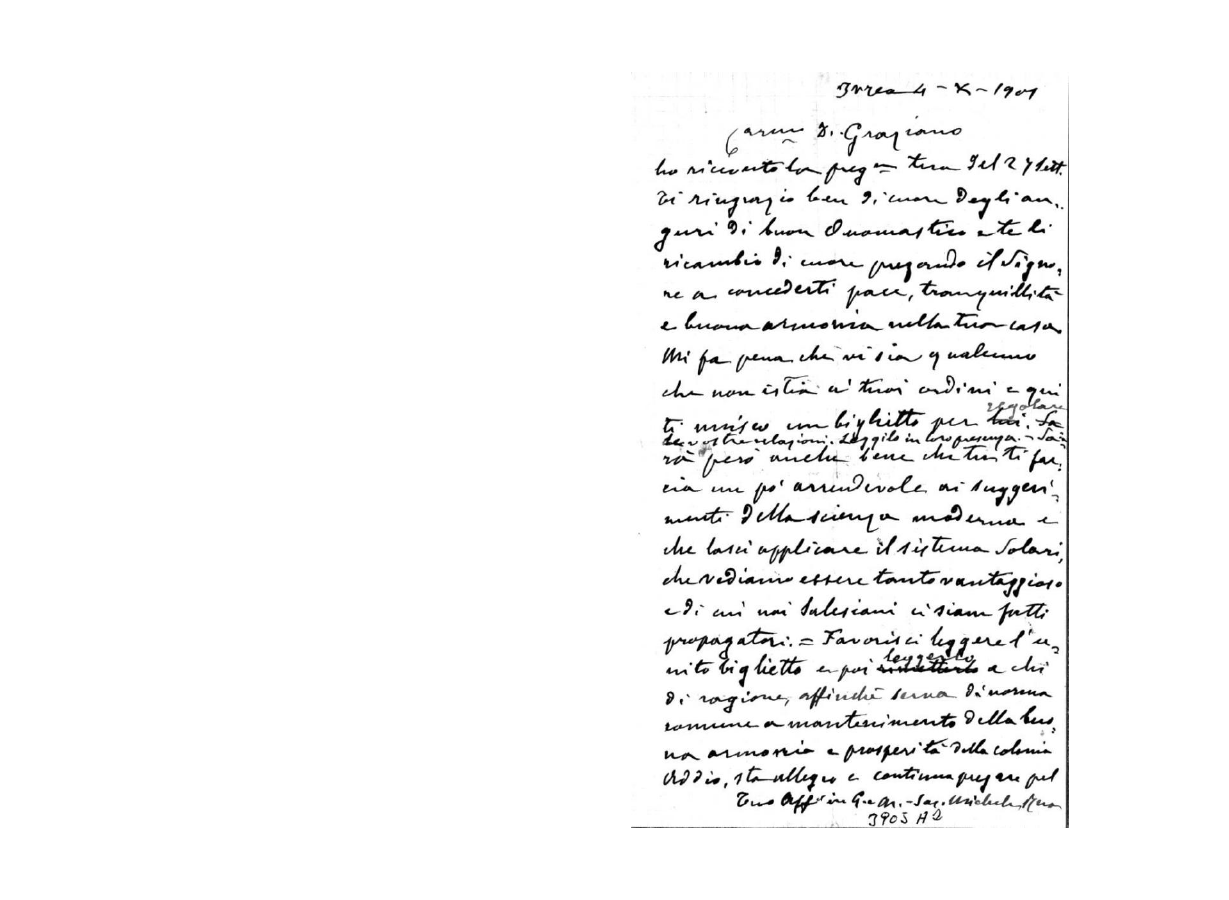 Ivrea 4 - X - 1901
Carmo D. Graziano
ho ricevuto la preg.ma tua del 27 Sett.
Ti ringrazio ben di cuore degli au-
guri di buon Onomastico e te li
ricambio di cuore pregando il Signo-
re a concederti pace, tranquillità
e buona armonia nella tua casa
Mi fa pena che vi sia qualcuno
che non istia ai tuoi ordini e qui
regolare
ti unisco un biglietto per lui. Sa
le vostre relazioni. Leggilo in loro presenza. - Sa-
rà però anche bene che tu ti fac-
cia un po' arrendevole ai suggeri-
menti della scienza moderna e
che lasci applicare il sistema Solari,
che vediamo essere tanto vantaggioso
e di cui noi Salesiani ci siam fatti
propagatori. = Favorisci leggere l'u-
leggerlo
nito biglietto e poi rimetterlo a chi
di ragione, affinché serva di norma
comune a mantenimento della buo-
na armonia e prosperità della colonia
Addio, sta allegro e continua pregare pel
Tuo Aff in G. e M. - Sac. Michele Rua
3905 A2